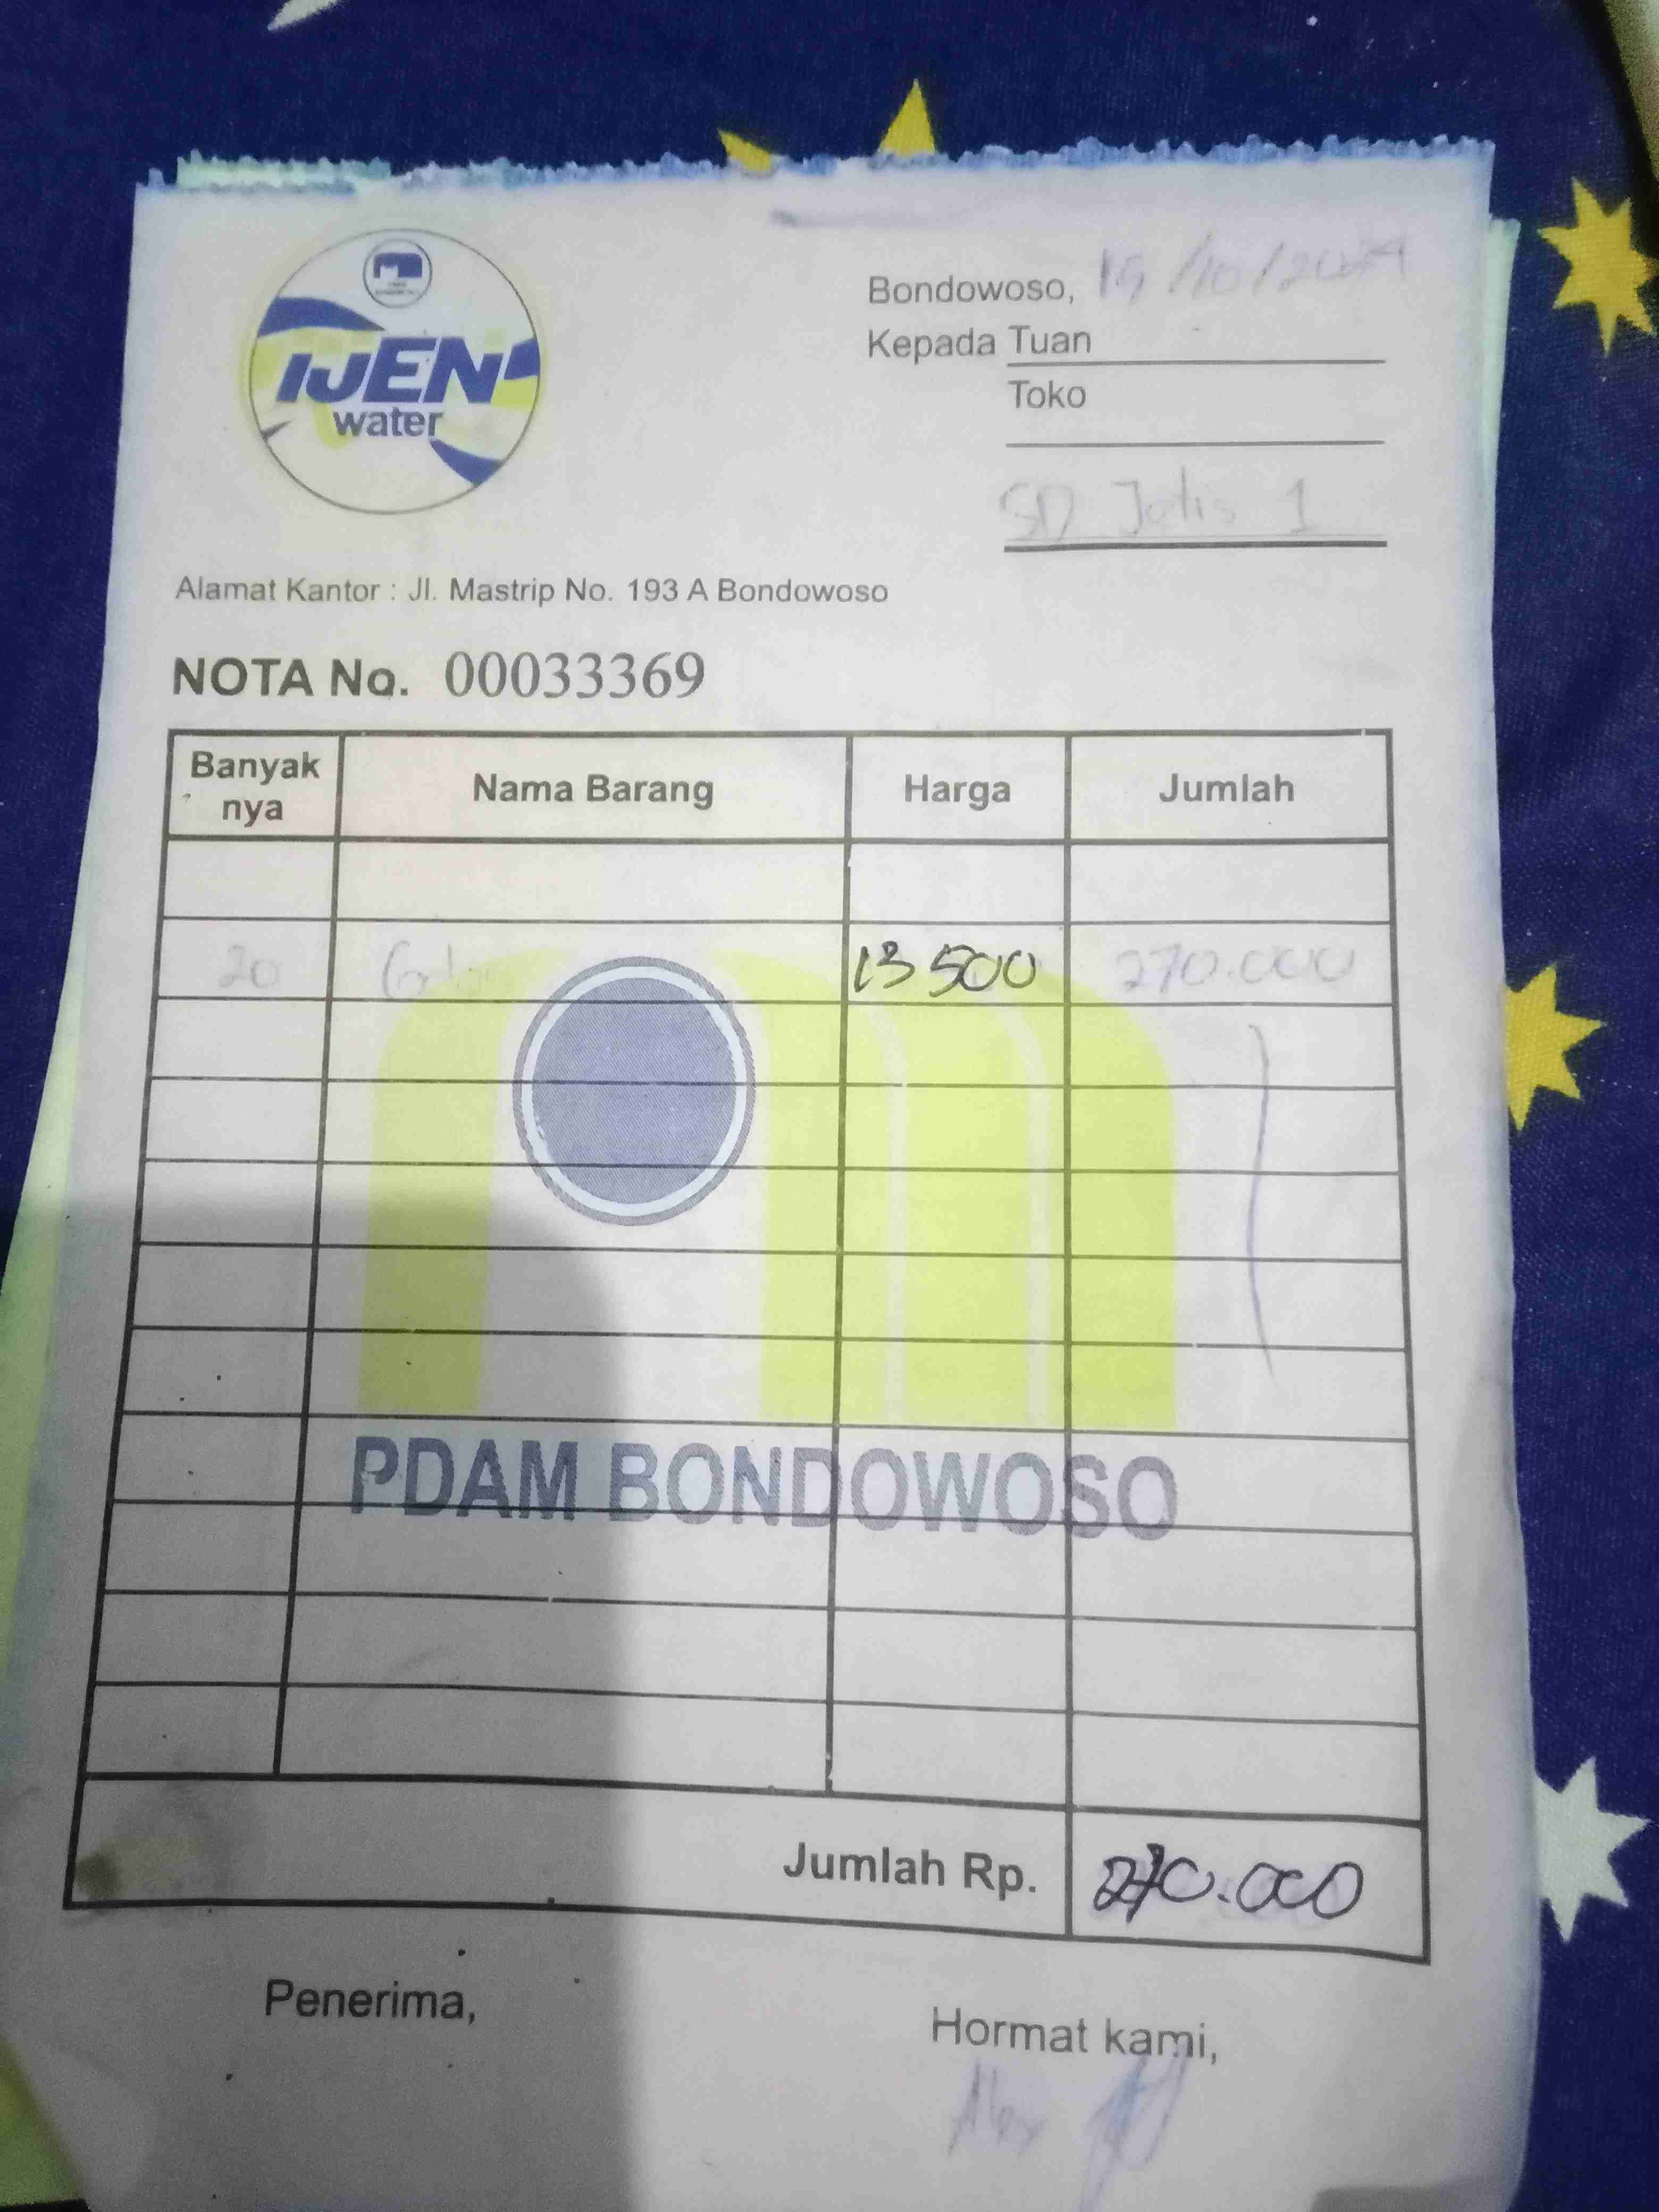 IJEN
water
Bondowoso, /10/2024
Kepada Tuan
Toko
SD Jatis 1
Alamat Kantor : Jl. Mastrip No. 193 A Bondowoso
NOTA No. 00033369
Banyak nya Nama Barang Harga Jumlah
20 13 500 270.000
PDAM BONDOWOSO
Jumlah Rp. 270.000
Penerima,
Hormat kami,
Alex